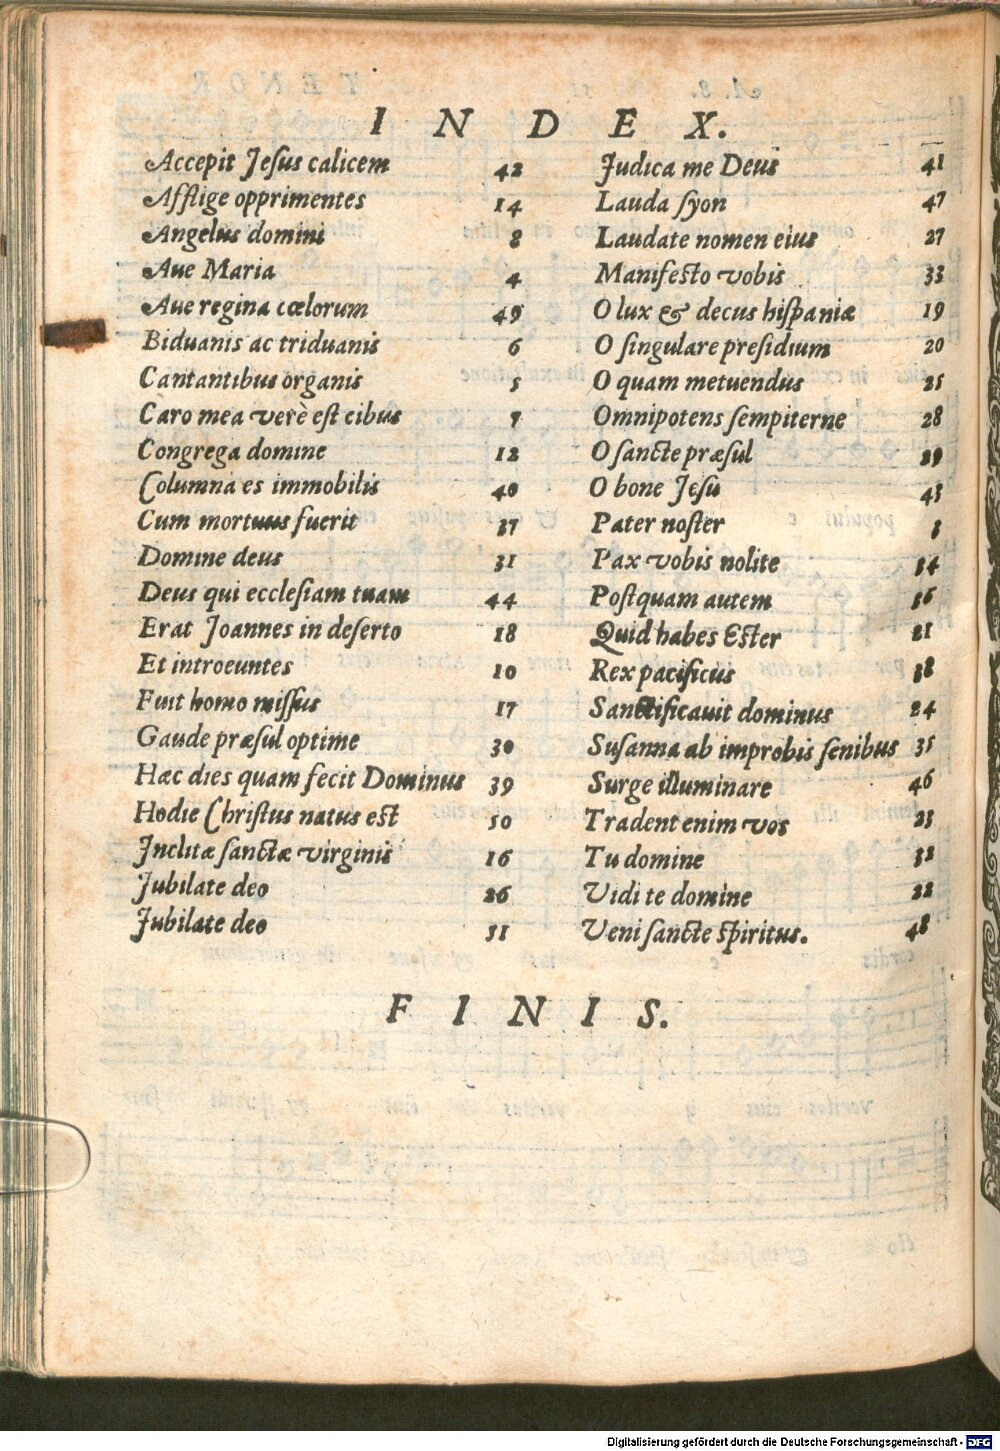 INDEX.
Accepit Jeſus calicem 42
Afflige opprimentes 14
Angelus domini 8
Aue Maria 4
Aue regina cœlorum 49
Biduanis ac triduanis 6
Cantantibus organis 5
Caro mea verè eſt cibus 7
Congrega domine 12
Columna es immobilis 40
Cum mortuus fuerit 37
Domine deus 31
Deus qui eccleſiam tuam 44
Erat Joannes in deſerto 18
Et introeuntes 10
Fuit homo miſſus 17
Gaude præſul optime 30
Hac dies quam fecit Dominus 39
Hodie Chriſtus natus eſt 50
Inclitæ ſanctæ virginis 16
Jubilate deo 26
Jubilate deo 51
Judica me Deus 41
Lauda ſyon 47
Laudate nomen eius 27
Manifeſto vobis 33
O lux & decus hiſpaniæ 19
O ſingulare preſidium 20
O quam metuendus 25
Omnipotens ſempiterne 28
O ſancte præſul 29
O bone Jeſu 43
Pater noſter 3
Pax vobis nolite 34
Poſtquam autem 36
Quid habes Eſter 21
Rex pacificus 38
Sanctificauit dominus 24
Suſanna ab improbis ſenibus 35
Surge illuminare 46
Tradent enim vos 23
Tu domine 32
Vidi te domine 22
Veni ſancte ſpiritus. 48
FINIS.
Digitalisierung gefördert durch die Deutsche Forschungsgemeinschaft - DFG